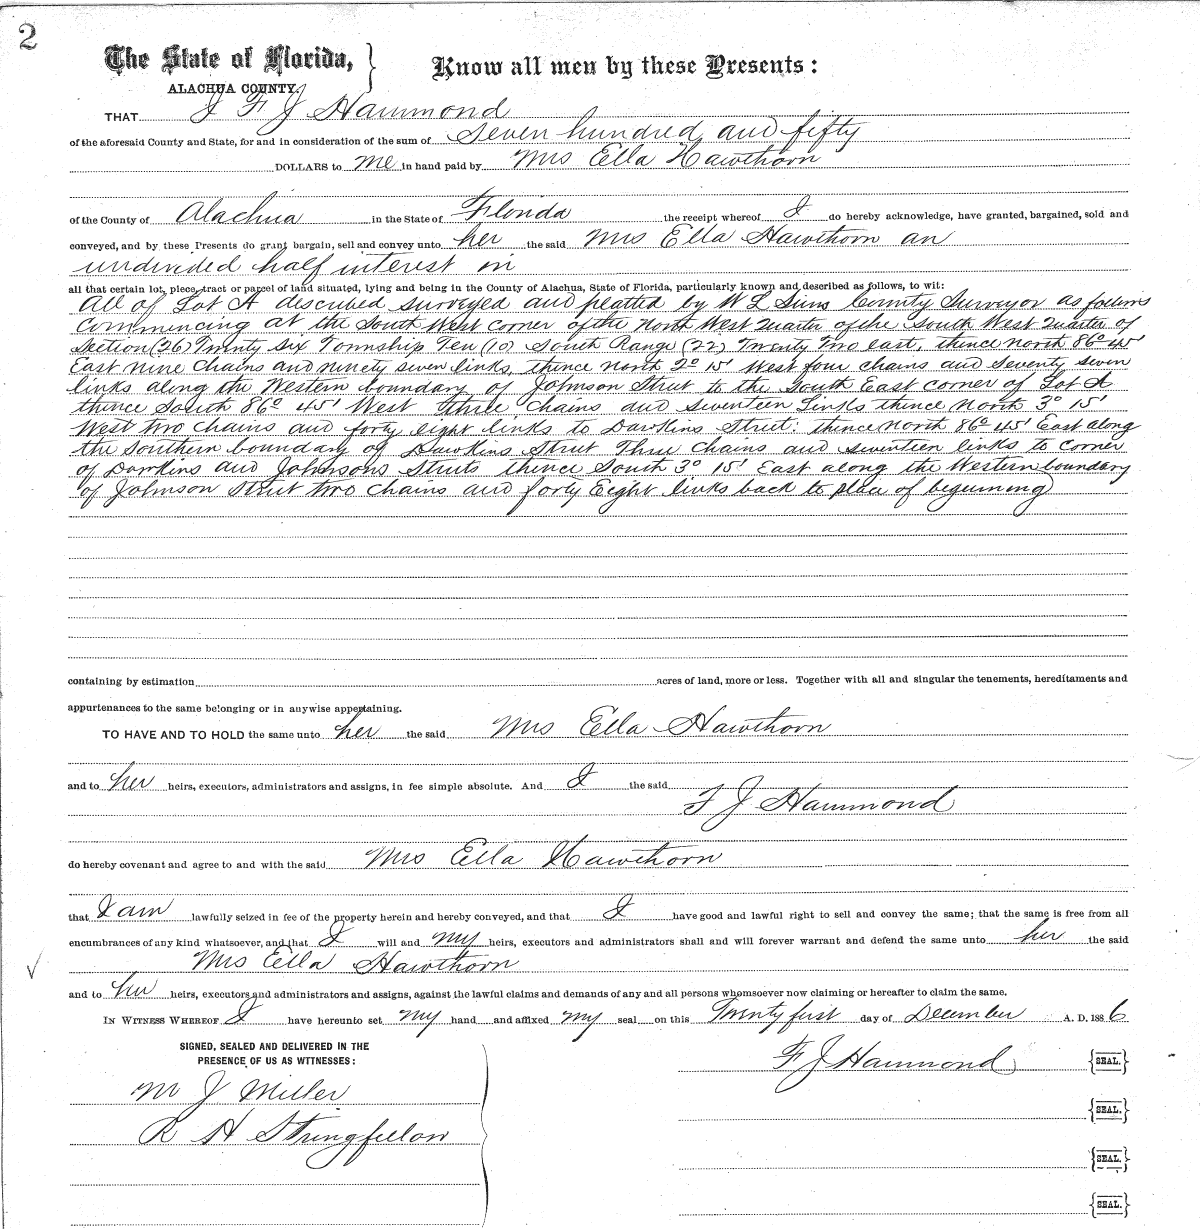 2
The State of Florida, } Know all men by these Presents:
ALACHUA COUNTY.
THAT I F J Hammond
of the aforesaid County and State, for and in consideration of the sum of Seven hundred and fifty
DOLLARS to me in hand paid by Mrs Ella Hawthorn
of the County of Alachua in the State of Florida the receipt whereof I do hereby acknowledge, have granted, bargained, sold and
conveyed, and by these Presents do grant bargain, sell and convey unto her the said Mrs Ella Hawthorn an
undivided half interest in
all that certain lot, piece, tract or parcel of land situated, lying and being in the County of Alachua, State of Florida, particularly known and described as follows, to wit:
All of Lot A described surveyed and platted by W L Sims County Surveyor as follows
Commencing at the South West corner of the North West Quarter of the South West Quarter of
Section (26) Twenty Six Township Ten (10) South Range (22) Twenty Two east, thence north 86° 45'
East nine chains and ninety seven links, thence north 2° 15' West four chains and seventy seven
links along the Western boundary of Johnson Street to the South East corner of Lot A
thence South 86° 45' West Three Chains and seventeen Links thence North 3° 15'
West two chains and forty eight links to Dawkins Street: thence North 86° 45' East along
the Southern boundary of Dawkins Street Three Chains and seventeen links to corner
of Dawkins and Johnsons Streets thence South 3° 15' East along the Western boundary
of Johnson Street two chains and forty Eight links back to place of beginning
containing by estimation acres of land, more or less. Together with all and singular the tenements, hereditaments and
appurtenances to the same belonging or in anywise appertaining.
TO HAVE AND TO HOLD the same unto her the said Mrs Ella Hawthorn
and to her heirs, executors, administrators and assigns, in fee simple absolute. And I the said
F J Hammond
do hereby covenant and agree to and with the said Mrs Ella Hawthorn
that I am lawfully seized in fee of the property herein and hereby conveyed, and that I have good and lawful right to sell and convey the same; that the same is free from all
encumbrances of any kind whatsoever, and that I will and my heirs, executors and administrators shall and will forever warrant and defend the same unto her the said
Mrs Ella Hawthorn
and to her heirs, executors and administrators and assigns, against the lawful claims and demands of any and all persons whomsoever now claiming or hereafter to claim the same.
IN WITNESS WHEREOF I have hereunto set my hand and affixed my seal on this Twenty first day of December A. D. 1886
SIGNED, SEALED AND DELIVERED IN THE
PRESENCE OF US AS WITNESSES:
F J Hammond {SEAL.}
M J Miller
{SEAL.}
R H Stringfellow
{SEAL.}
{SEAL.}